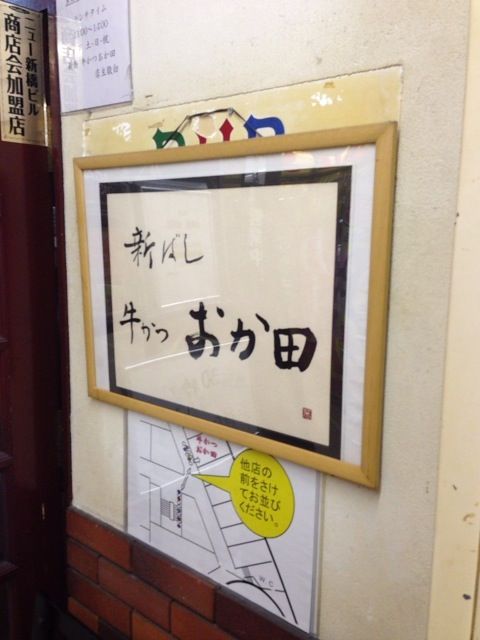 ニュー新橋ビル
商店会加盟店
土・日・祝
牛かつおか田
店主敬白
新ばし
牛かつ おか田
牛かつ
おか田
他店の
前をさけ
てお並び
ください。
WC